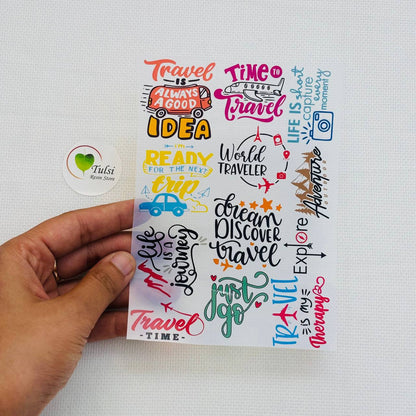 Travel
IS
ALWAYS
A GOOD
IDEA
TIME TO
Travel
LIFE IS short
capture
every
moment
I'M
READY
FOR THE NEXT
trip
World
TRAVELER
Adventure
dream
DISCOVER
travel
Explore
life
IS A
journey
just
go
TRAVEL
IS MY
Therapy
Travel
-TIME-
Tulsi
Resin Store